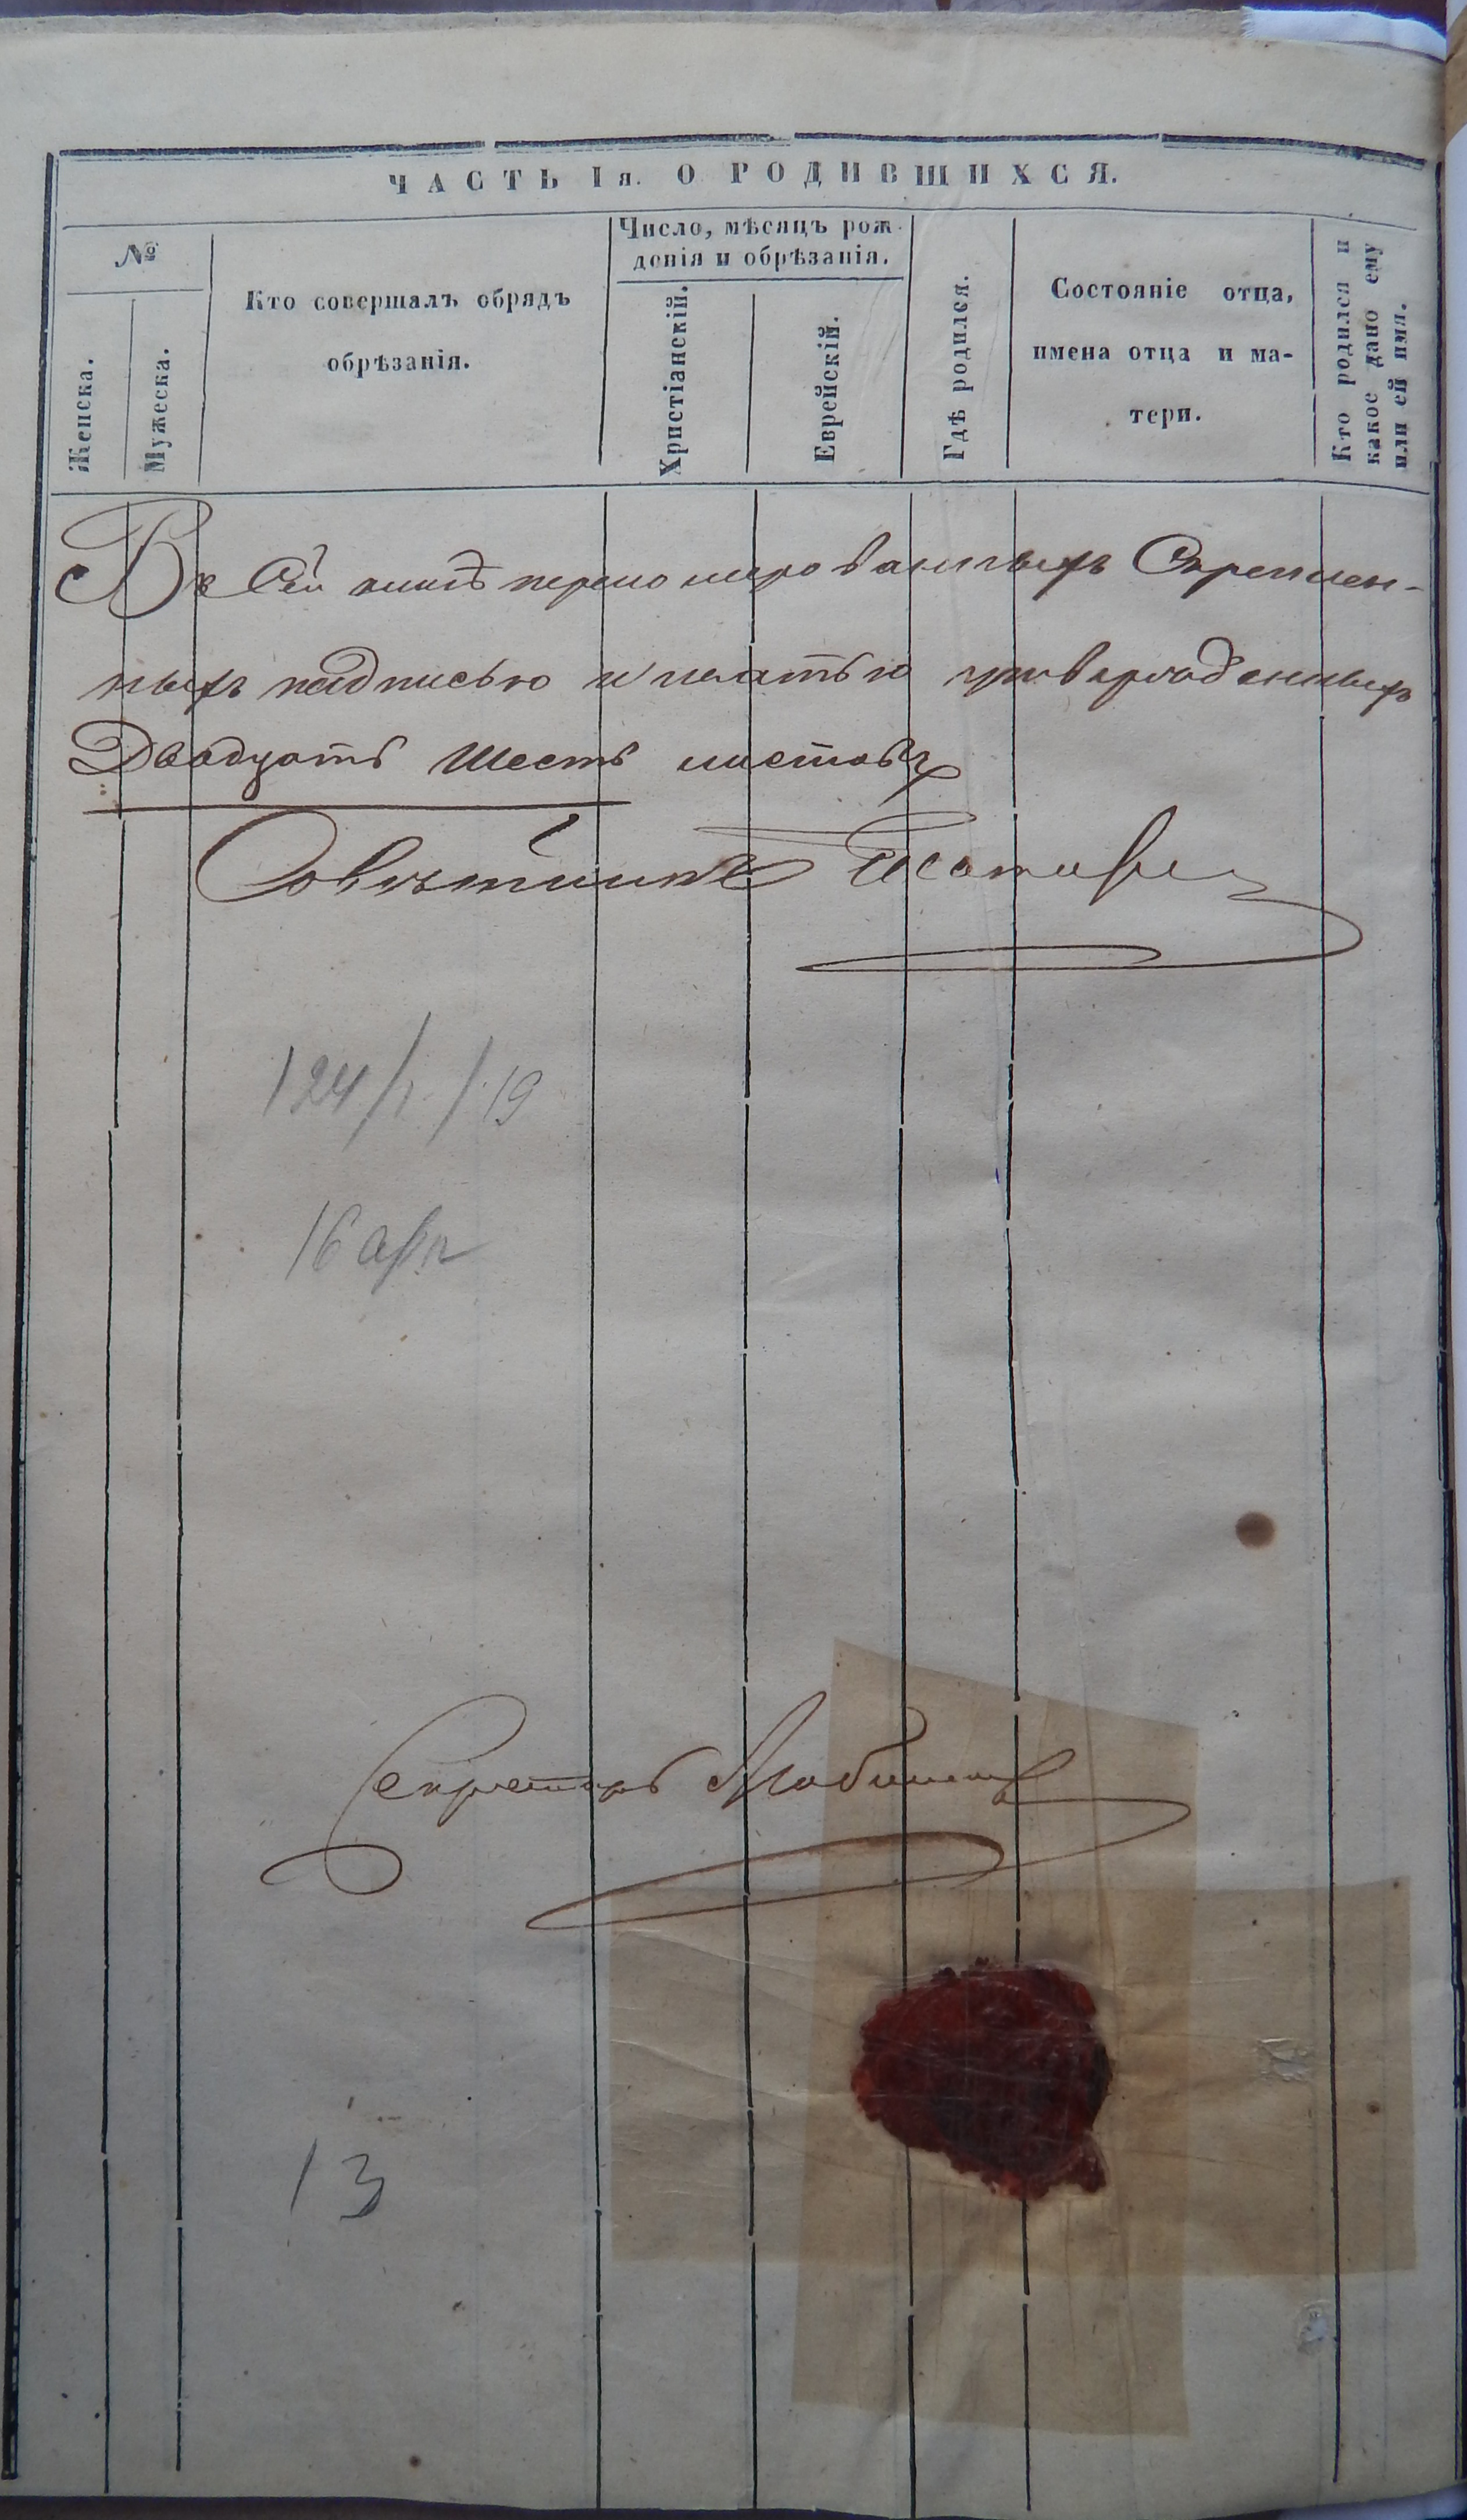 ЧАСТЬ Iя. О РОДИВШИХСЯ.
№
Женска.
Мужеска.
Кто совершалъ обрядъ
обрѣзанія.
Число, мѣсяцъ рож-
денія и обрѣзанія.
Христіанскій.
Еврейскій.
Гдѣ родился.
Состояніе отца,
имена отца и ма-
тери.
Кто родился и
какое дано ему
или ей имя.
Въ Сей книгѣ перономерованныхъ Скреплен-
ныхъ надписью и печатью утвержденныхъ
Двадцать Шесть листовъ
Совѣтникъ
124/1./19
16 арк
Секретарь
13